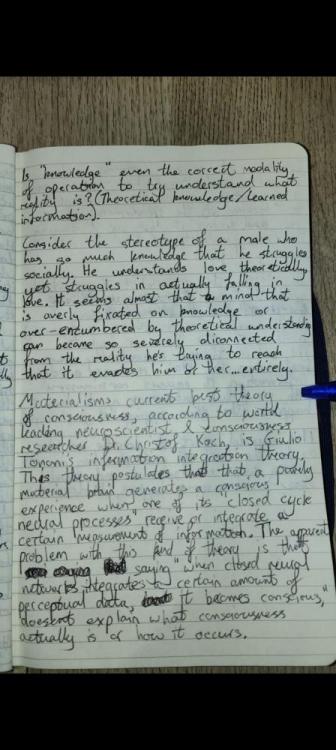 Is "knowledge" even the correct modality
of operation to try understand what
reality is? (Theoretical knowledge/learned
information).
Consider the stereotype of a male who
has so much knowledge that he struggles
socially. He understands love theoretically
yet struggles in actually falling in
love. It seems almost that a mind that
is overly fixated on knowledge or
over-encumbered by theoretical understanding
can become so severely disconnected
from the reality he's trying to reach
that it evades him or her...entirely.
Materialisms current best theory
of consciousness, according to world
leading neuroscientist & consciousness
researcher Dr. Christof Koch, is Giulio
Tononi's information integration theory.
This theory postulates that that a purely
material brain generates a conscious
experience when one of its "closed cycle
neural processes" receive or integrate a
certain measurement of information. The apparent
problem with this kind of theory is that
saying "when closed neural
networks integrates a certain amount of
perceptual data, it becomes conscious,"
doesen't explain what consciousness
actually is or how it occurs.